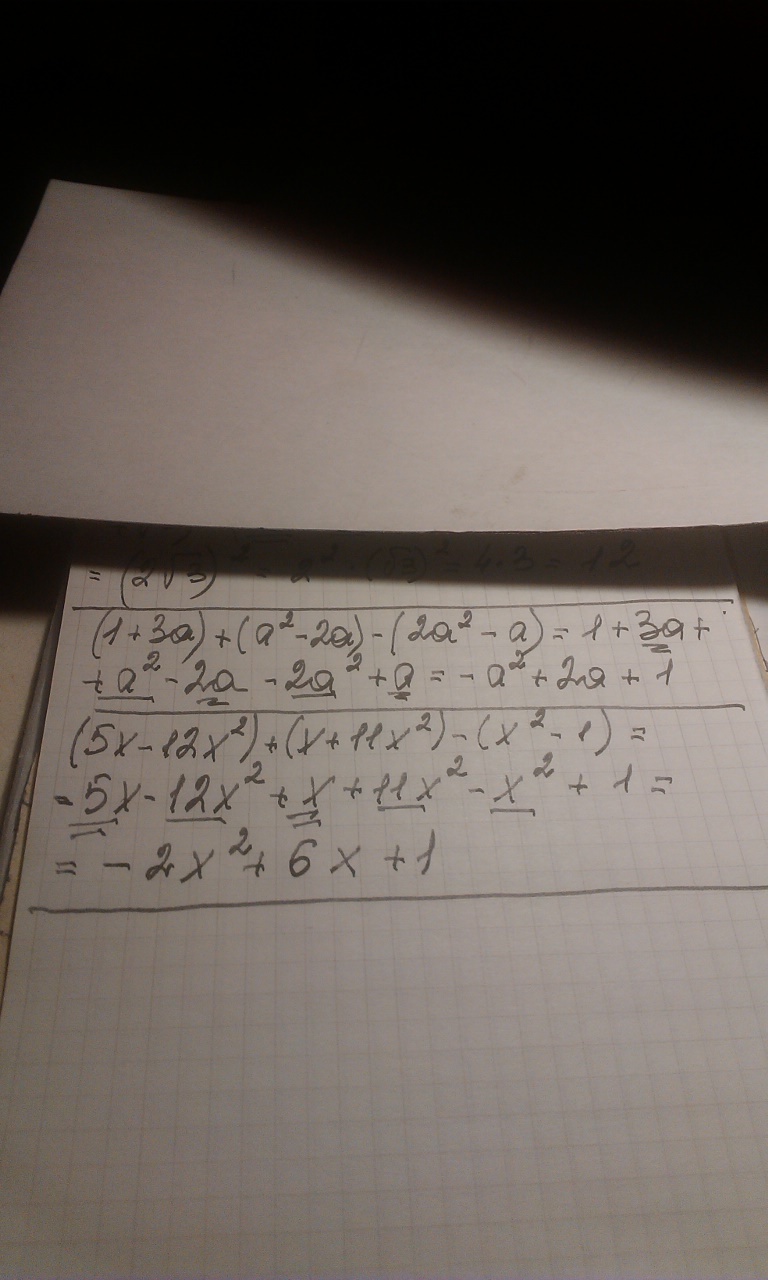 = (2√3)² = 2² · (√3)² = 4·3 = 12
(1+3a)+(a²-2a)-(2a²-a)=1+3a+
+a²-2a-2a²+a=-a²+2a+1
(5x-12x²)+(x+11x²)-(x²-1)=
=5x-12x²+x+11x²-x²+1=
=-2x²+6x+1